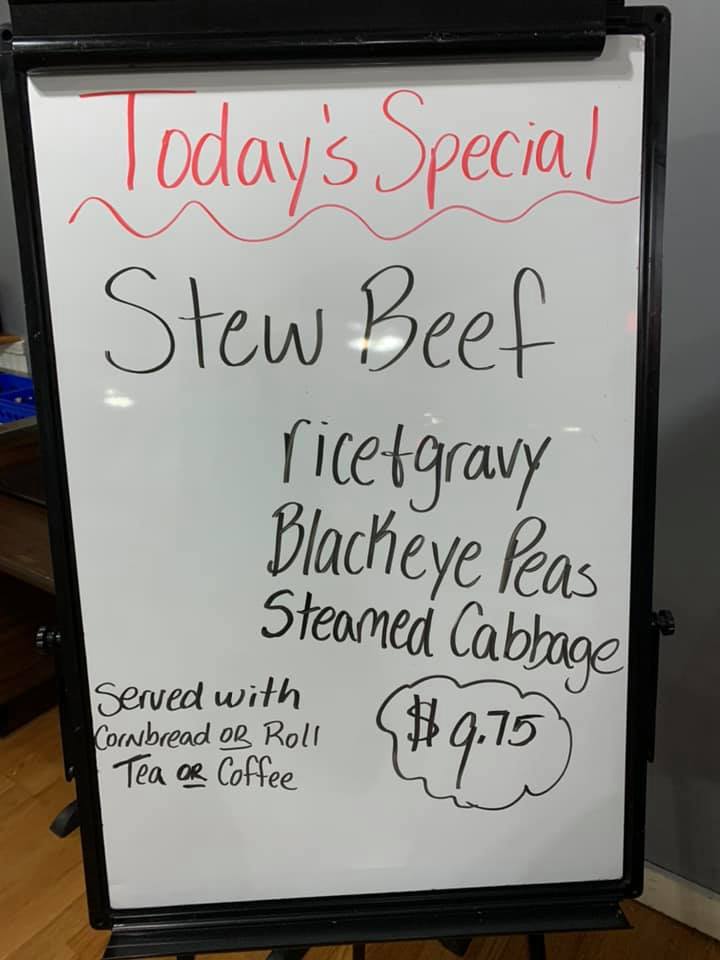 Today's Special
Stew Beef
rice+gravy
Blackeye Peas
Steamed Cabbage
Served with
Cornbread OR Roll
Tea OR Coffee
$9.75